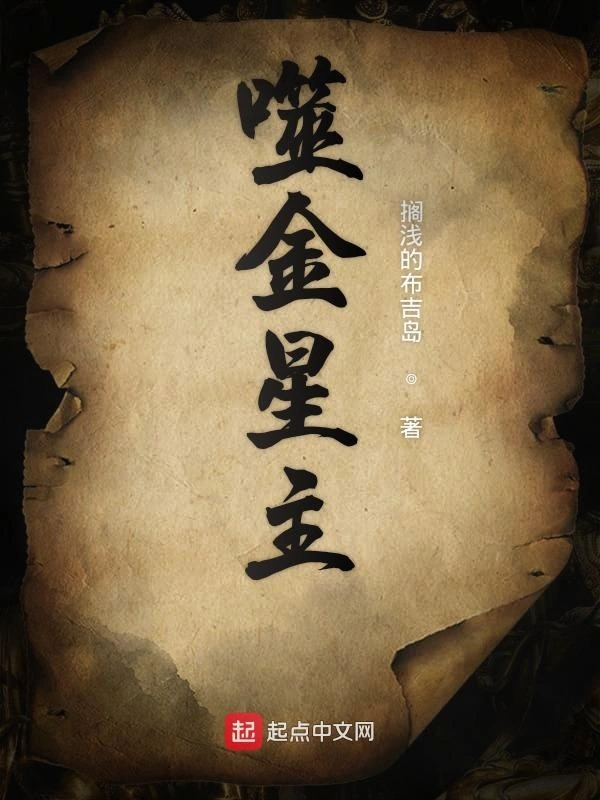 噬金星主
搁浅的布吉岛 ◎ 著
起 起点中文网